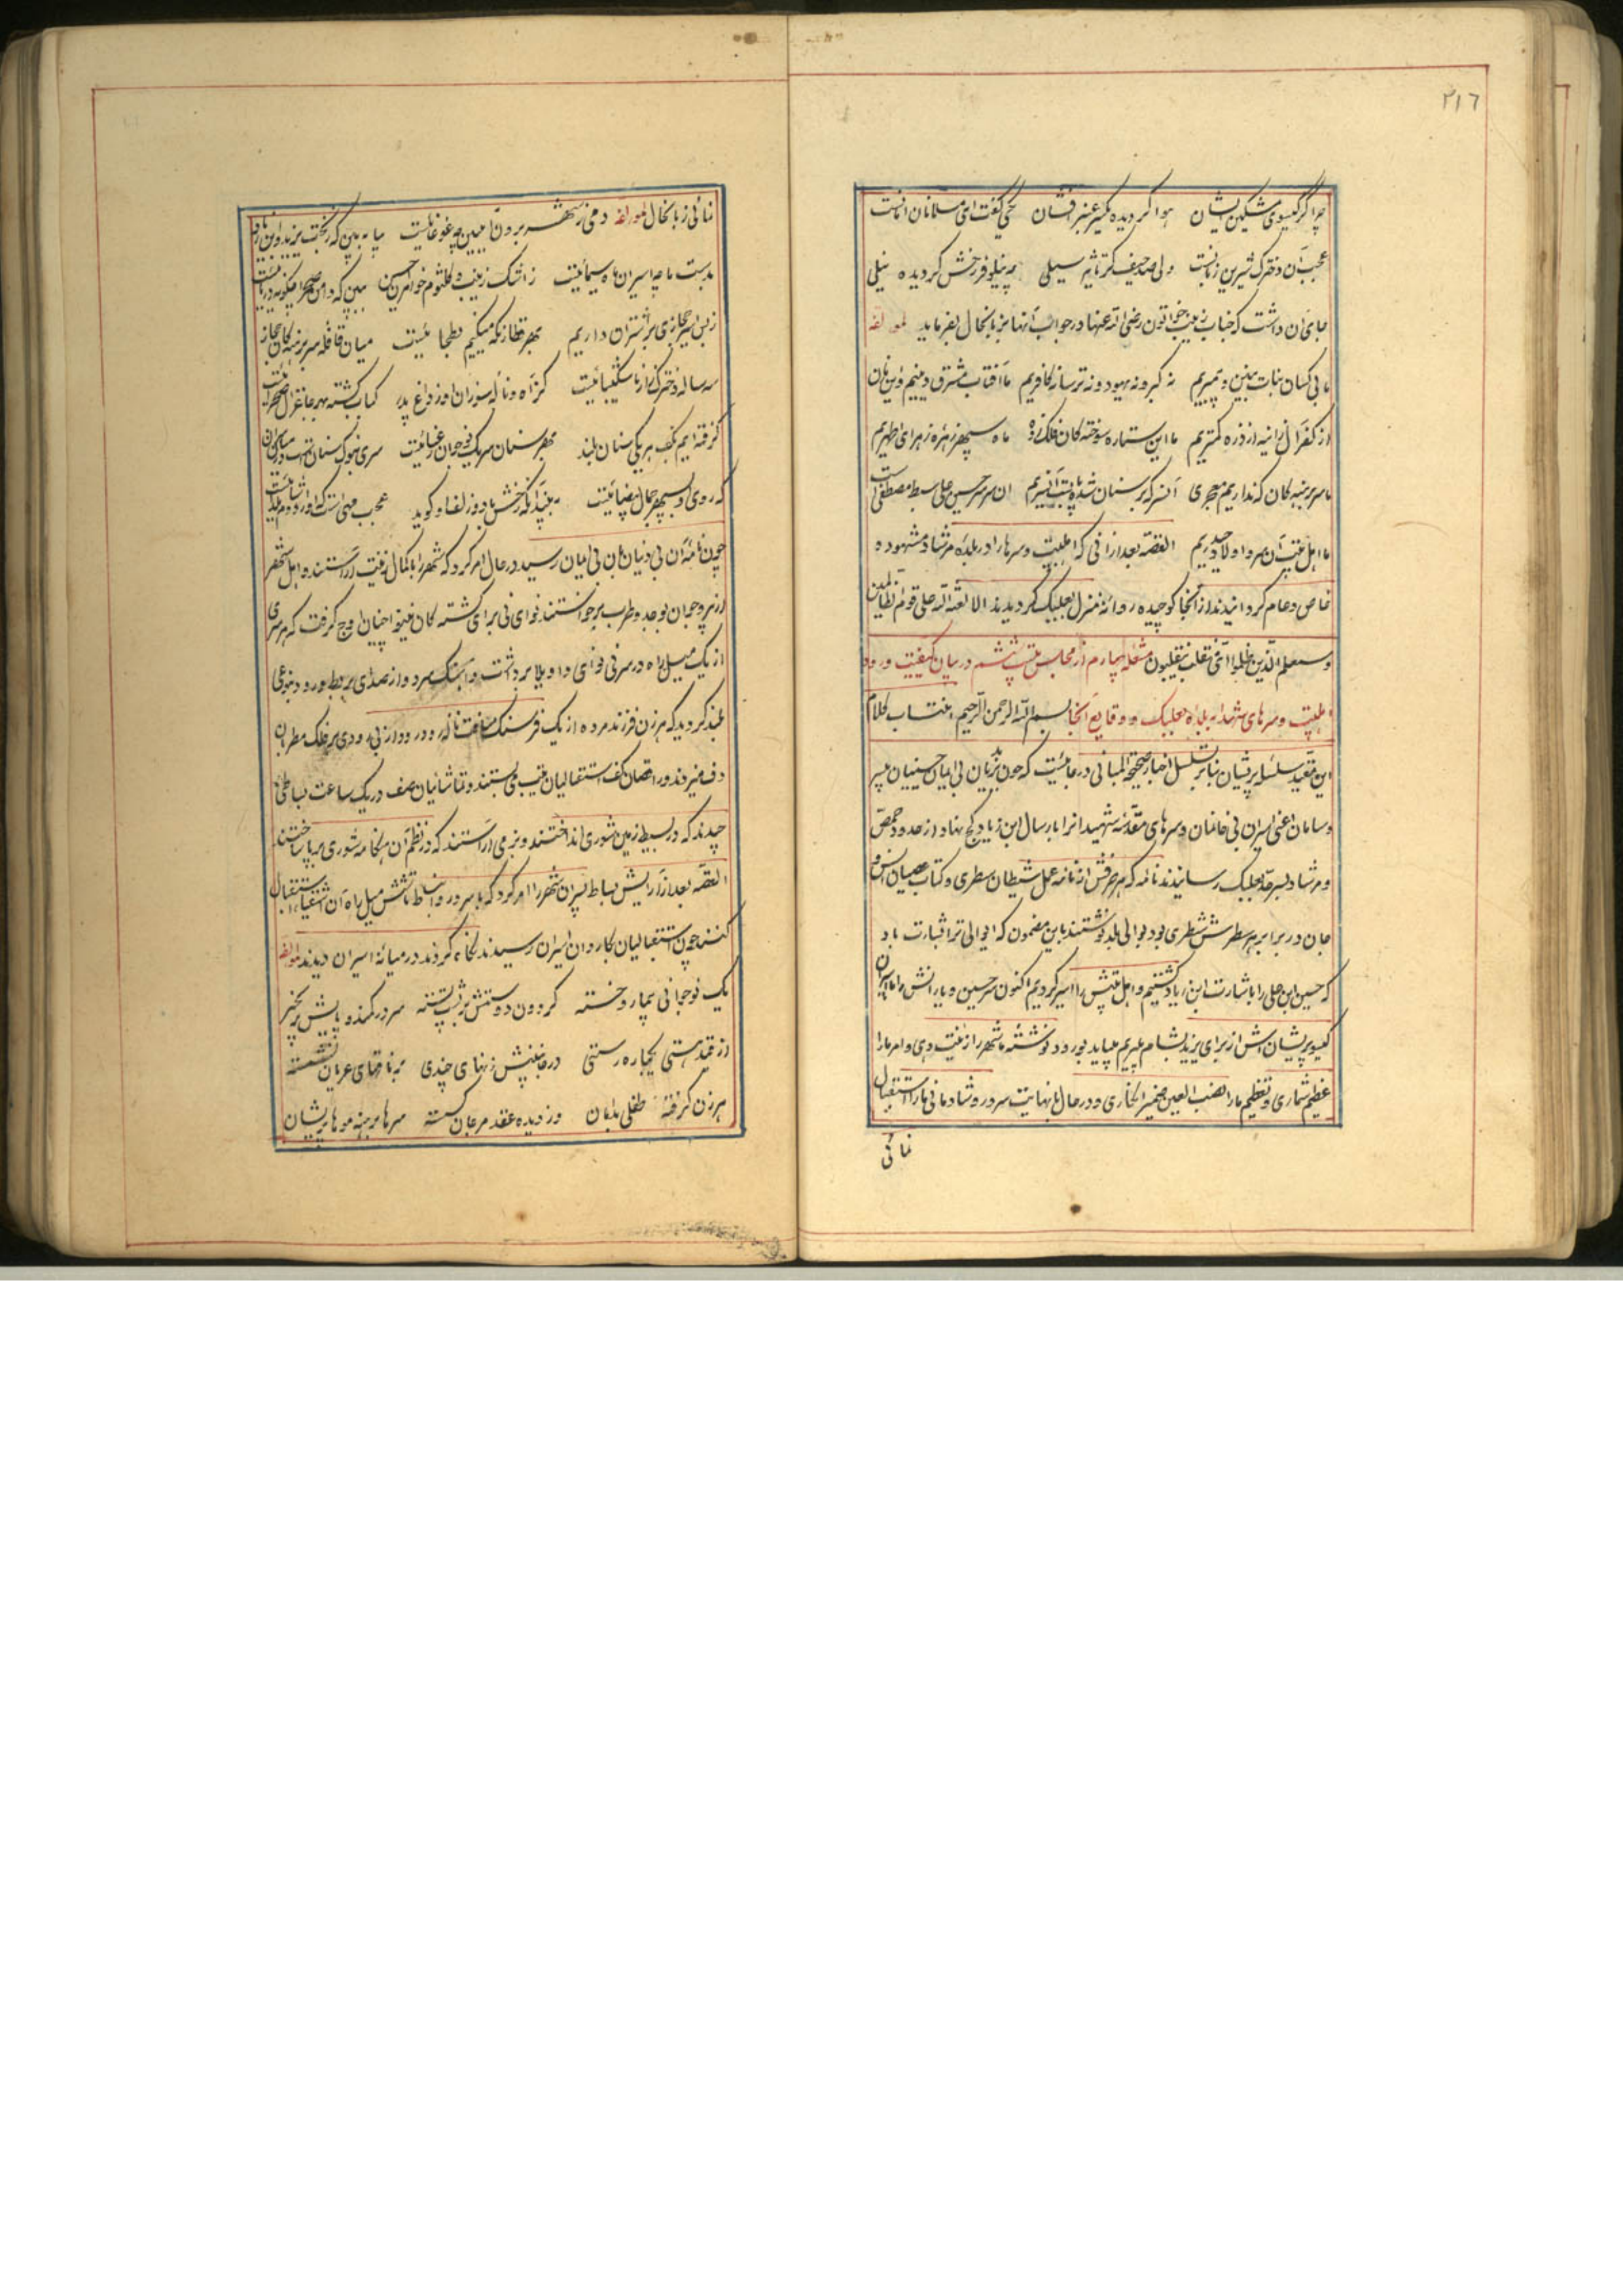 ٢١٦
چرا گر گیسوی مشکین ایشان هوا گردیده یکسر عنبر افشان یکی گفت ای مسلمانان
عجب آن دخترک شیرین زبانست ولی صد حیف کز تاثیر سیلی چه نیلوفر رخش گردیده نیلی
جای آن داشت که جناب زینب خواتون رضی الله عنها در جواب آنها بزبانحال بفرماید لمؤلفه
ما بی کسان بنات پیمبریم نه گبر و نه یهود و نه ترسا نه کافریم ما آفتاب مشرق دینیم
از ذره کمتریم ما این ستاره سوخته کان فلک زده ماه سپهر زهره زهرای اطهریم
ما سر برهنه کان که نداریم معجری آنسر که بر سنان شده ان سر حسین علی سبط مصطفی است
ما اهل بیت آن سر و اولاد حیدریم القصه بعد از آنی که اهلبیت و سرها را در بلده مرشاد مشهوده
خاص و عام گردانیدند از آنجا کوچیده روانهٔ منزل بعلبک گردیدند الا لعنة الله علی قوم الظالمین
وسیعلم الذین ظلموا ای منقلب ینقلبون مشعله چهارم از مجلس ششم در بیان کیفیت ورود
اهلبیت و سرهای شهدا به بلده بعلبک و وقایع آنجا بسم الله الرحمن الرحیم انتساب کلام
این مقید سلسله پریشان بنا بر تسلسل اخبار صحیحة المبانی در جائیست که چون یزیدیان بی ایمان حسینیان بی سر
و سامان اعنی اسیران بی خانمان و سرهای مقدسه شهیدانرا بارسال ابن زیاد کج نهاد از حدود حمص
و مرشاد بسرحد بعلبک رسانیدند نامه که هر حرفش از نامه عمل شیطان سطری و کتاب عصیان انس و
جان در برابر هر سطرش شطری بود بوالی بلد نوشتند باین مضمون که ایوالی ترا بشارت باد
که حسین ابن علی را باشارت ابن زیاد کشتیم و اهل بیتش را اسیر کردیم اکنون سر حسین و یارانش را با اسیران
گیسو پریشانش از برای یزید بشام میبریم میباید بورود نوشته ما شهر را زینت دهی و امر ما را
عظیم شماری و تعظیم ما را نصب العین ضمیر انگاری و در حال با نهایت سرور و شادمانی ما را استقبال
نمائی
نمائی زبانحال لمؤلفه دمی ز شهر برون آ ببین چه غوغائیست بیا به بین که ز بخت یزید و ابن زیاد
بدست ما چه اسیران ماه سیمائیست ز اشک زینب و کلثوم خواهران حسین ببین که دامن صحرا چگونه دریائیست
زبس اسیر حجازی بر اشتران داریم بهر قطار نگه میکنیم میان قافله سر برهنه کان حجاز
سه ساله دختر زار ناشکیبائیست کز آه و ناله سوزان او ز داغ پدر کباب گشته بهر جا غزال صحرائیست
گرفته ایم بکف هر یکی سنان بلند بهر سنان سر یک نوجوان رعنائیست سری بنوک سنانهاست در میان سران
که روی او بسپهر جمال بیضائیست به نیزه آنکه رخش با دو زلف او گوید
چون نامهٔ آن بی دینان بآن بی ایمان رسید در حال امر کرد که شهر را بکمال زینت آراستند و اهل شهر
از پیر و جوان بوجد و طرب برخواستند نوای نی برای کشته کان نینوا چنان اوج گرفت که هر سری
از یک میل راه در سر نی نوای واویلا برداشت و آهنگ سرود و از صدای بربط و رود بنوعی
بلند گردید که هر زن فرزند مرده از یک فرسنگ مسافت ناله رود رود از بی رودی بر فلک مطربان
دف میزدند و رقاصان کف استقبالیان عقب نی بستند و تماشائیان صف در یک ساعت بساطی
چیدند که در بسیط زمین شوری انداختند و بزمی آراستند که در نظم آن هنگامه شوری برپا ساختند
القصه بعد از آرایش بساط پیران شهر را امر کرد که با سرور و انبساط تا شش میل راه آن اشقیا را استقبال
کنند چون استقبالیان بکاروان اسیران رسیدند نگاه کردند در میانهٔ اسیران دیدند لمؤلفه
یک نوجوانی بیمار و خسته گردون دو دستش بر پشت بسته سر در کمند و پایش بزنجیر
از قید هستی یکباره رستی در جنبش زنهای چندی بر ناقهای عریان نشسته
هر زن گرفته طفلی بدامان وز دیده عقد مرجان گسسته سرها برهنه موها پریشان